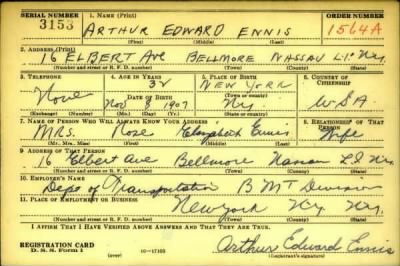 SERIAL NUMBER 1. NAME (Print) ORDER NUMBER
3153 ARTHUR EDWARD ENNIS 1564A
(First) (Middle) (Last)
2. ADDRESS (Print)
16 ELBERT AVE BELLMORE NASSAU L.I. N.Y.
(Number and street or R. F. D. number) (Town) (County) (State)
3. TELEPHONE 4. AGE IN YEARS 5. PLACE OF BIRTH 6. COUNTRY OF CITIZENSHIP
32 NEW YORK
None DATE OF BIRTH (Town or county)
Nov 8 1907 N.Y. U.S.A.
(Exchange) (Number) (Mo.) (Day) (Yr.) (State or country)
7. NAME OF PERSON WHO WILL ALWAYS KNOW YOUR ADDRESS 8. RELATIONSHIP OF THAT PERSON
MRS. Rose Elizabeth Ennis Wife
(Mr., Mrs., Miss) (First) (Middle) (Last)
9. ADDRESS OF THAT PERSON
16 Elbert Ave Bellmore Nassau L.I. N.Y.
(Number and street or R. F. D. number) (Town) (County) (State)
10. EMPLOYER'S NAME
Dept of Transportation B M T Division
11. PLACE OF EMPLOYMENT OR BUSINESS
New York N.Y. N.Y.
(Number and street or R. F. D. number) (Town) (County) (State)
I AFFIRM THAT I HAVE VERIFIED ABOVE ANSWERS AND THAT THEY ARE TRUE.
REGISTRATION CARD
D. S. S. Form 1 (over) 16—17105 Arthur Edward Ennis
(Registrant's signature)